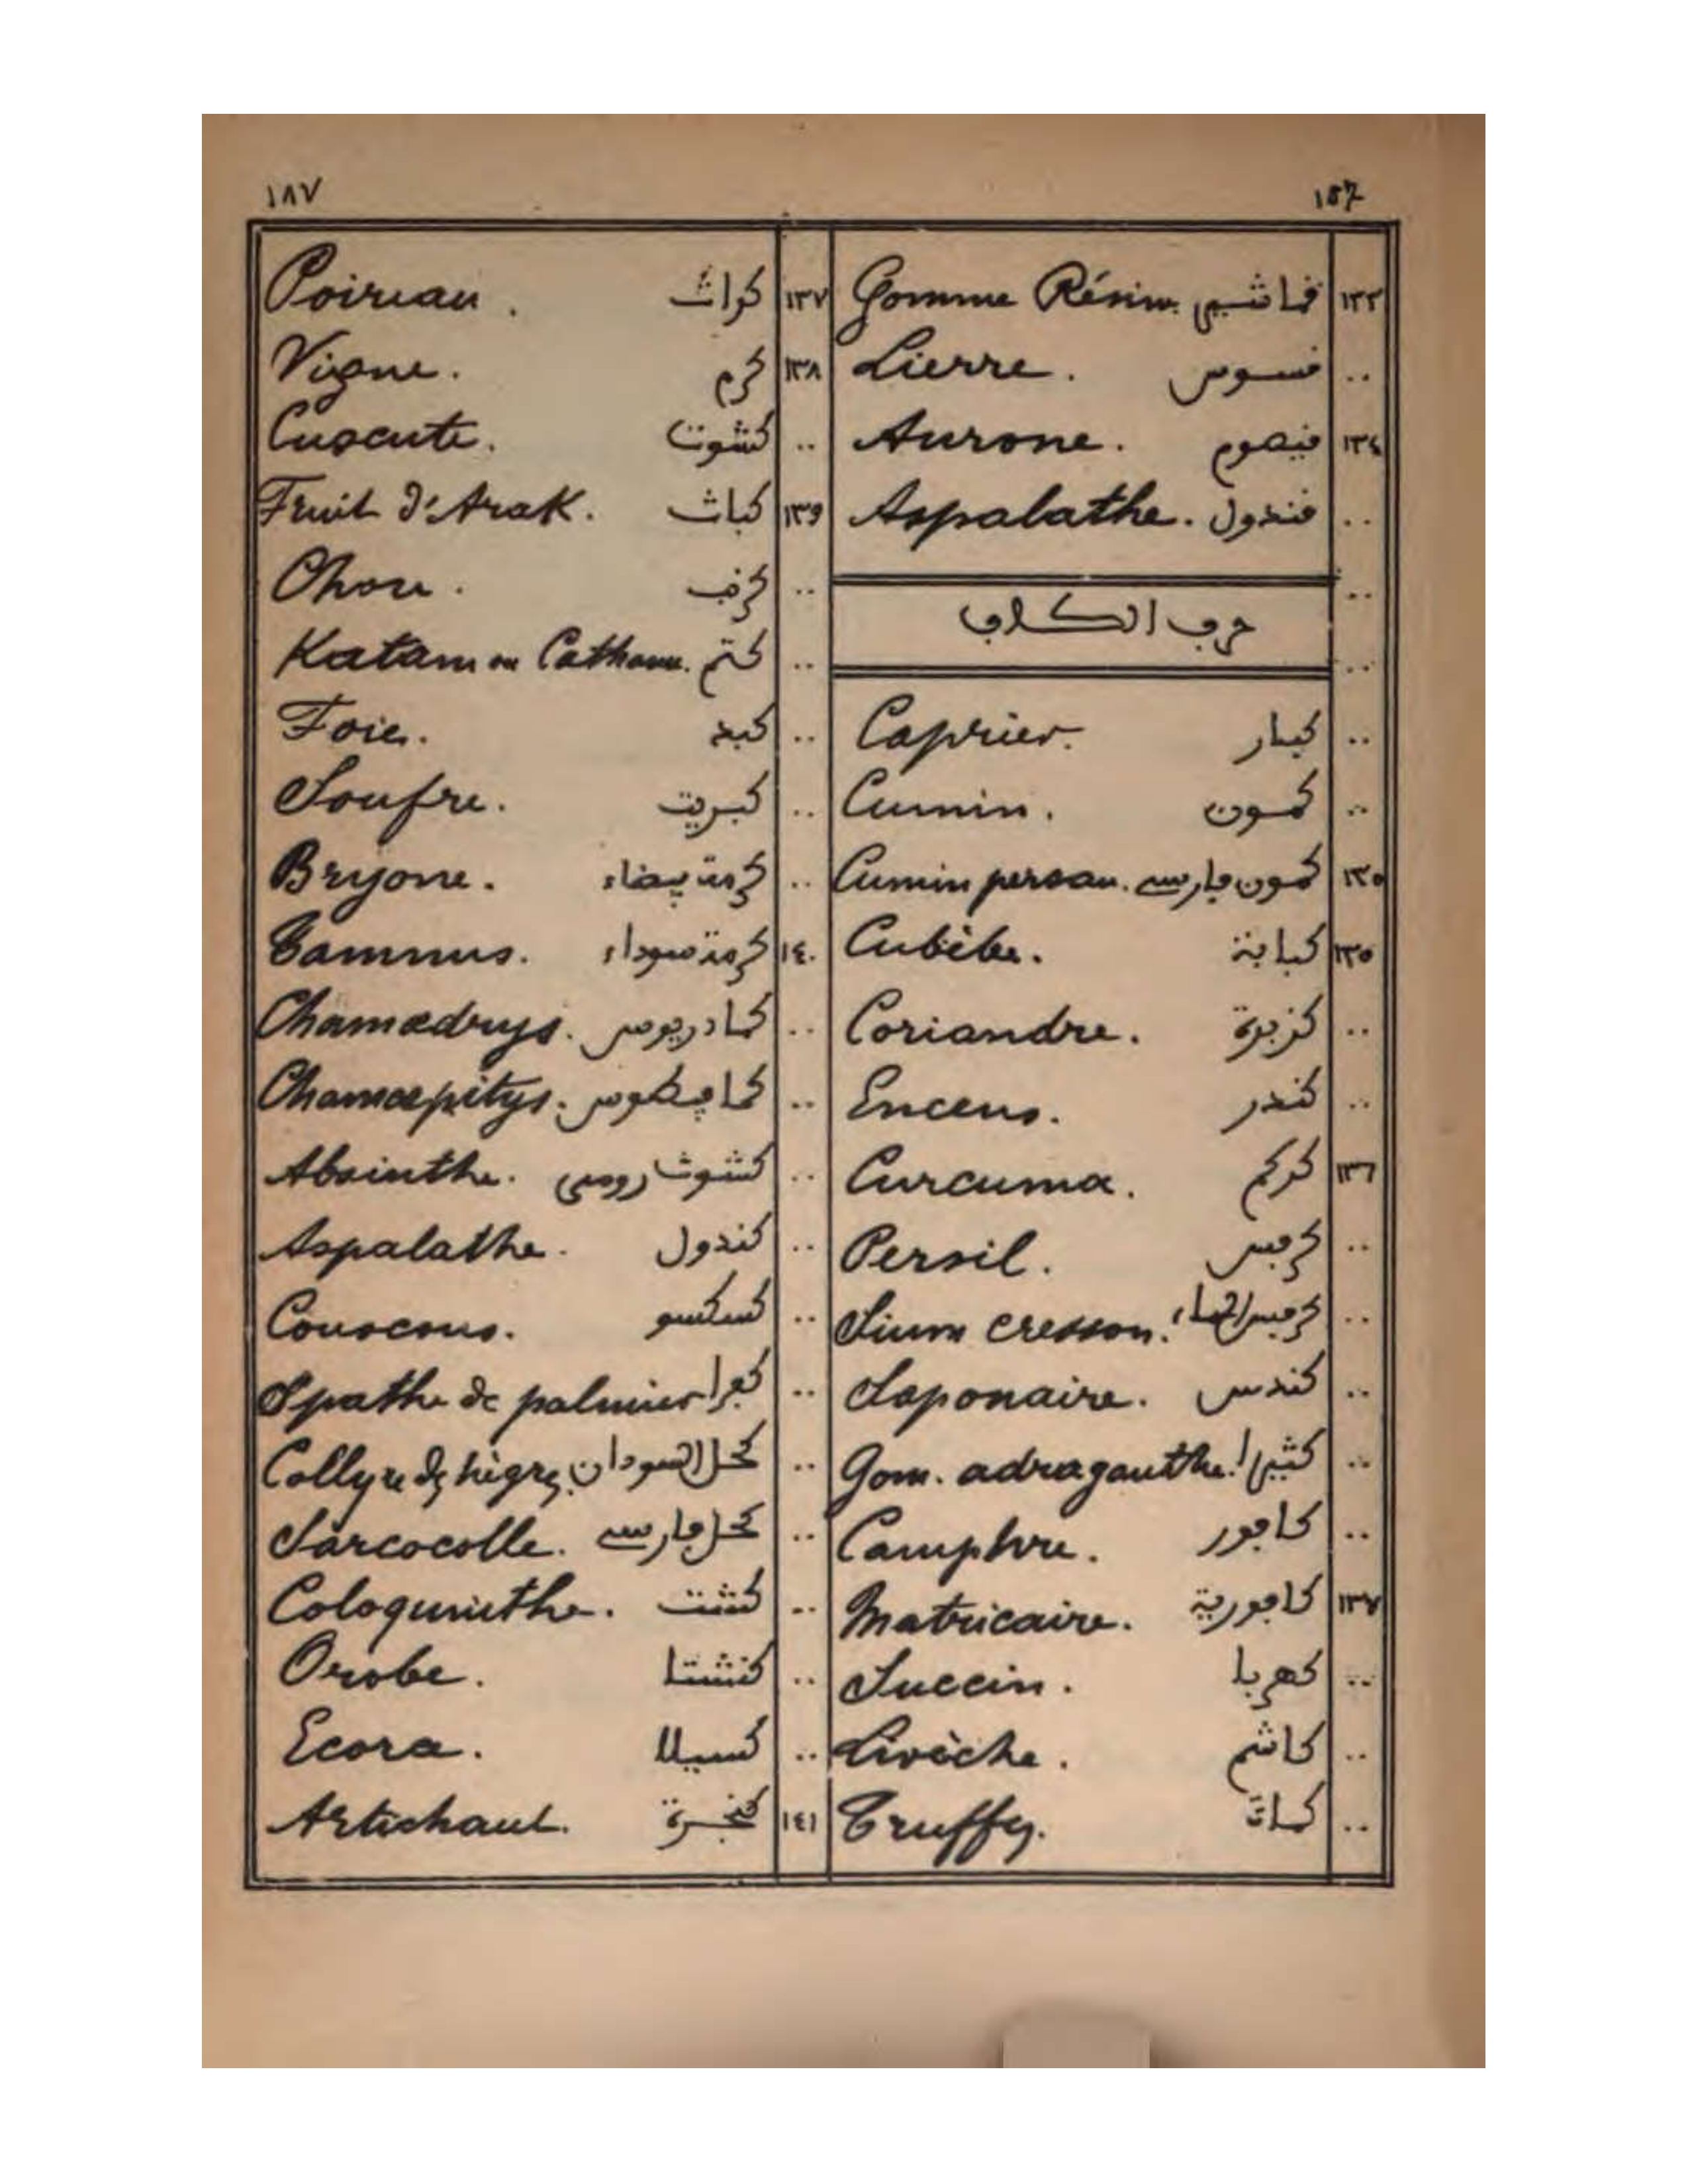 ١٨٧ 187
Gomme Résine ١٣٣
.. قسوس Lierre.
١٣٤ قيصوم Aurone.
.. قندول Aspalathe.
..
حرف الكاف
..
.. كبار Caprier.
.. كمون Cumin.
١٣٥ كمون فارسي Cumin persan.
١٣٥ كبابة Cubèbe.
.. كزبرة Coriandre.
.. كندر Encens.
١٣٦ كركم Curcuma.
.. كرفس Persil.
.. كرفس الماء Sium cresson.
.. كندس Saponaire.
.. كثيرا Gom. adraganthe.
.. كافور Camphre.
١٣٧ كافورية Matricaire.
.. كهربا Succin.
.. كاشم Livèche.
.. كماة Truffes.
١٣٧ كراث Poireau.
١٣٨ كرم Vigne.
.. كشوت Cuscute.
١٣٩ كباث Fruit d'Arak.
.. كرنب Chou.
.. كتم Katam ou Catham.
.. كبد Foie.
.. كبريت Soufre.
.. كرمة بيضاء Bryone.
١٤٠ كرمة سوداء Tammus.
.. كمادريوس Chamædrys.
.. كمافيطوس Chamæpitys.
.. كشوث رومي Absinthe.
.. كندول Aspalathe.
.. كسكسو Couscous.
.. كفرا Spathe de palmier
.. كحل السودان Collyre des nègres.
.. كحل فارسي Sarcocolle.
.. كشت Coloquinthe.
.. كشنا Orobe.
.. كسيلا Ecora.
١٤١ كنجرة Artichaut.